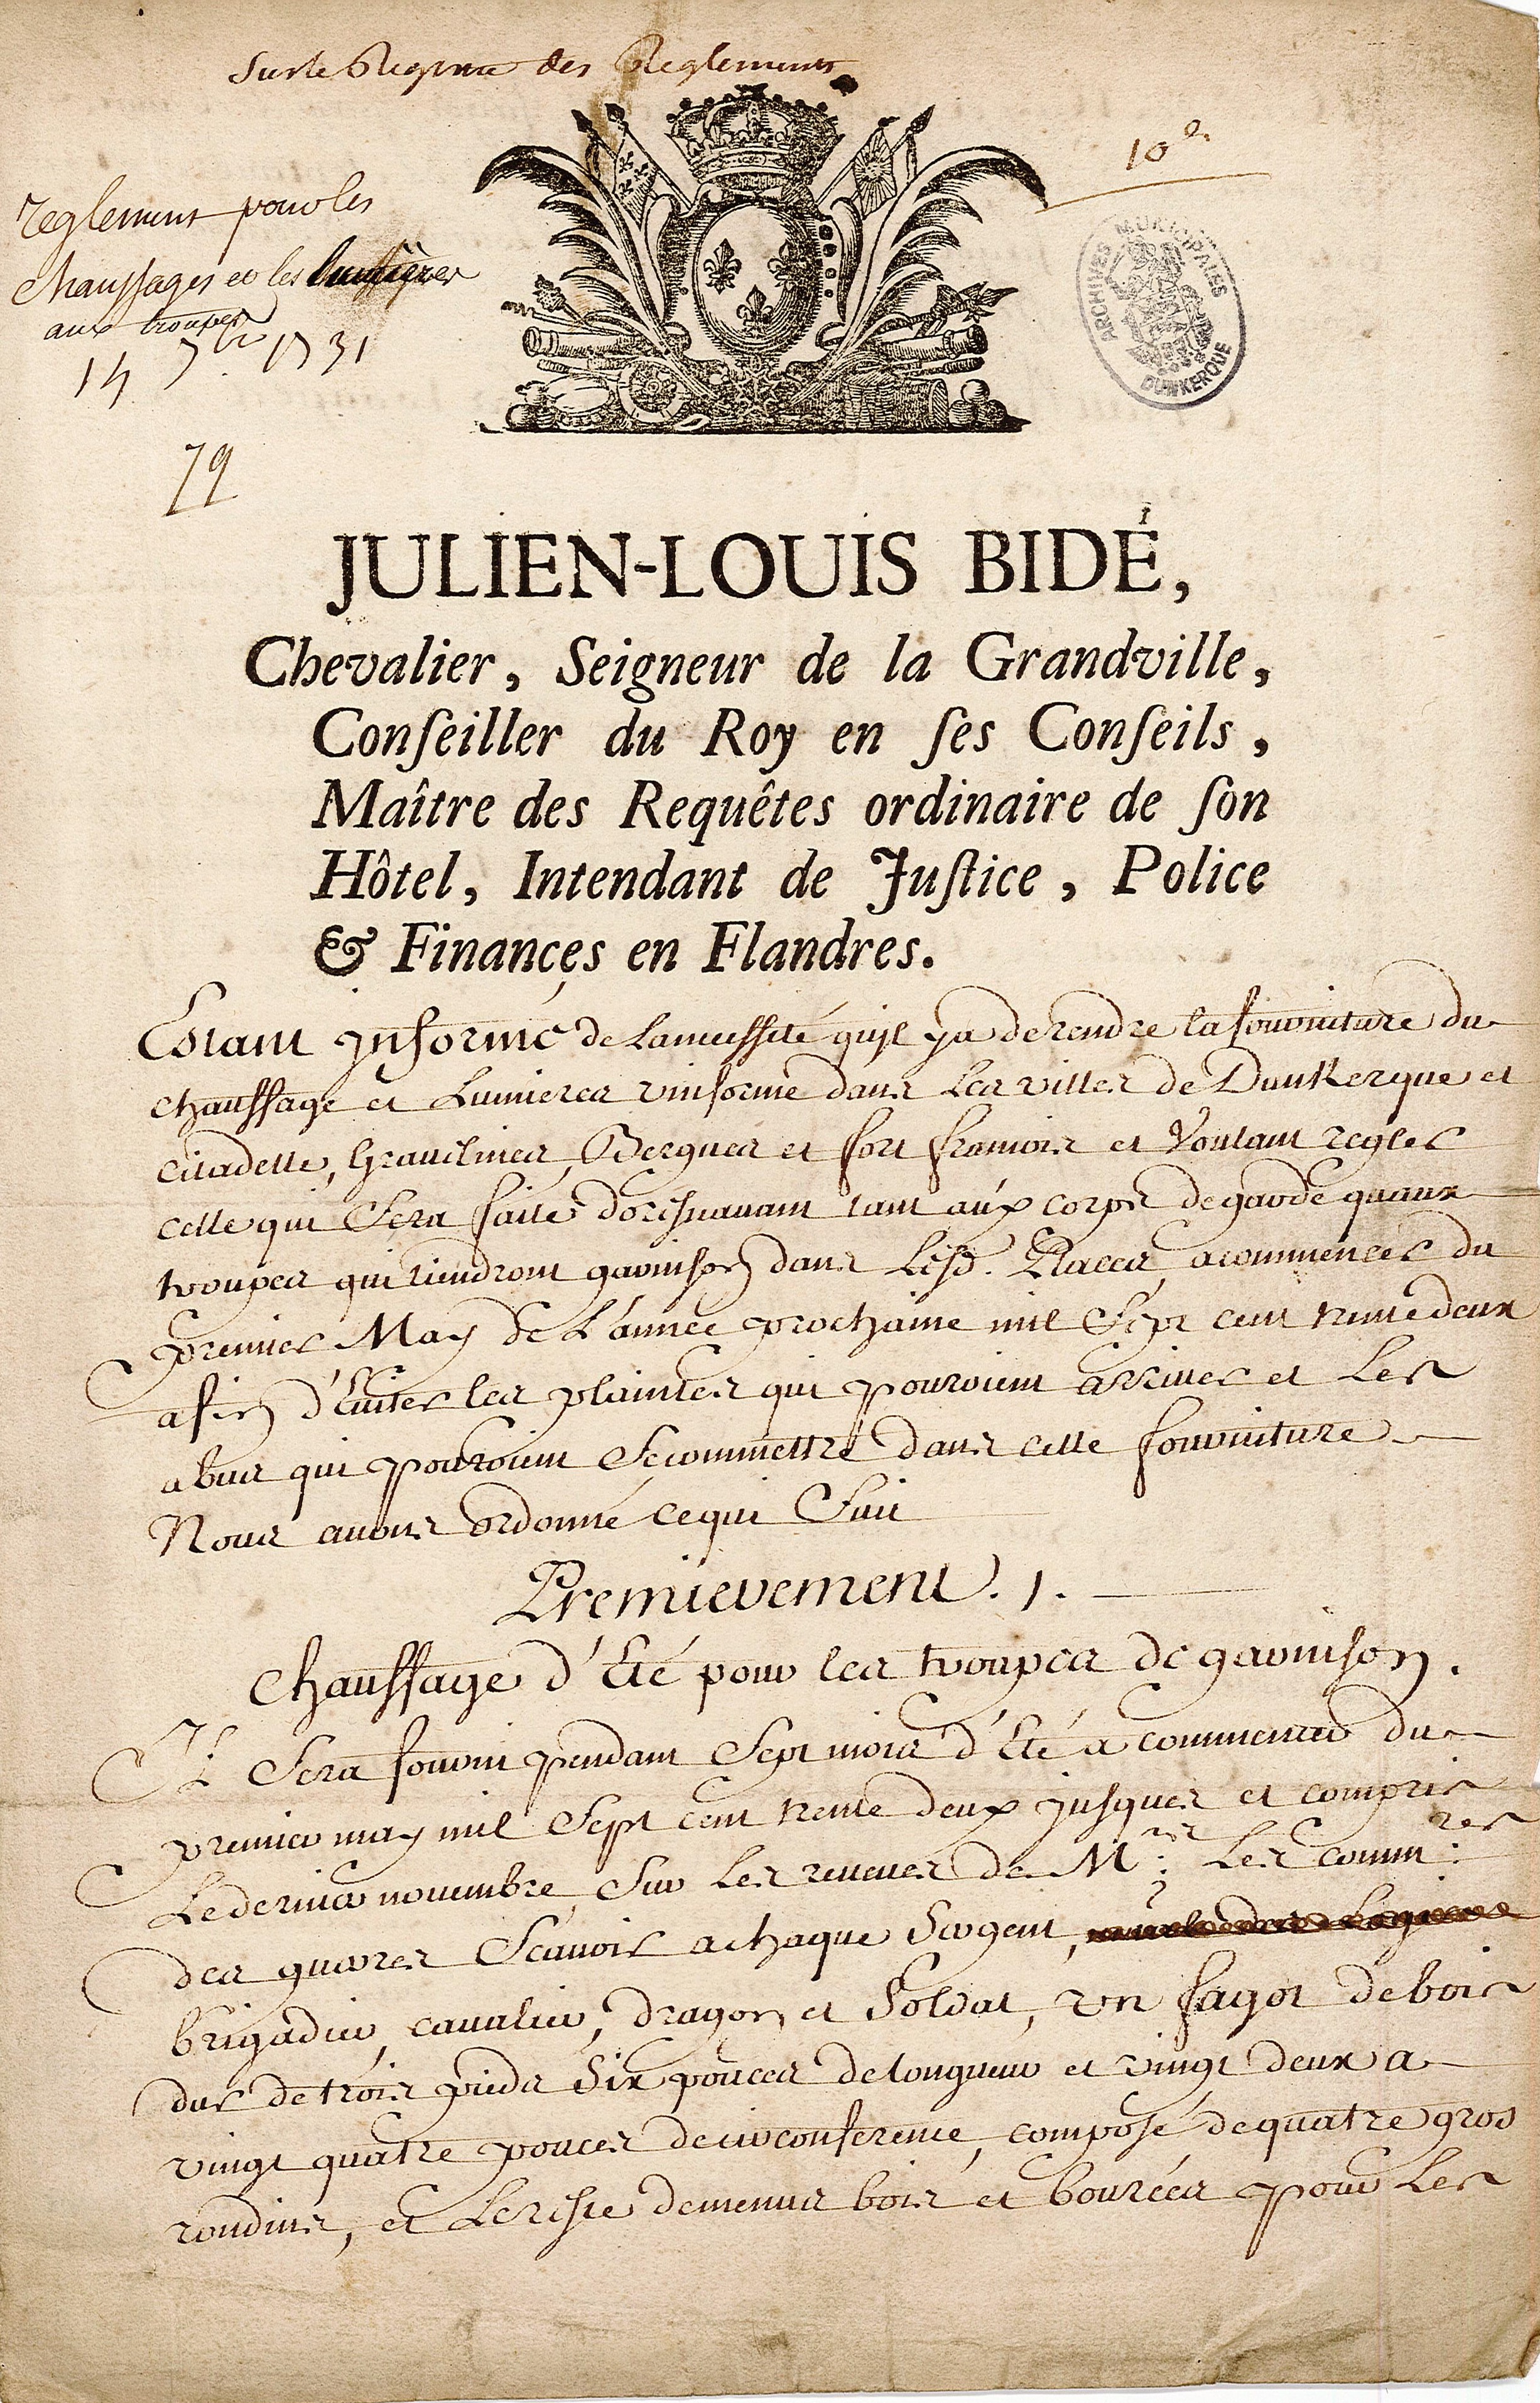 Sur le Registre des Reglements
10e.
reglement pour les
chauffages et les lumieres
aux troupes
14 7bre 1731
79
ARCHIVES MUNICIPALES
DUNKERQUE
JULIEN-LOUIS BIDÉ,
Chevalier, Seigneur de la Grandville,
Conſeiller du Roy en ſes Conſeils,
Maître des Requêtes ordinaire de ſon
Hôtel, Intendant de Juſtice, Police
& Finances en Flandres.
Estant jnformé de La necessité qu'jl y a de rendre la fourniture du
chauffage et Lumieres vniforme dans Les villes de DunKerque et
citadelle, Gravelines, Bergues et fort francois et Voulant regler
celle qui Sera faite doresnauant tant aux corps de garde quaux
troupes qui tiendront garnison dans Lesd. Places, acommencer du
premier May de L'année prochaine mil Sept cent trente deux
afin d'Euiter les plaintes qui pouroient arriuer et Les
abus qui pouroient Se commettre dans cette fourniture
Nous auons ordonné ce qui Suit
Premierement. 1.
chauffage d'Eté pour les troupes de garnison.
Il Sera fourni pendant Sept mois d'Eté a commencer du
premier may mil Sept cent trente deux jusques et compris
Le dernier nouembre, Sur Les reueues de Mrs: Les comm:res
des guerres Scauoir a chaque Sergent,
brigadier, caualier, dragon et Soldat, vn fagot de bois
dur de trois pieds Six pouces de longueur et vingt deux a
vingt quatre pouces de circonference, composé de quatre gros
rondins, et Le reste de menus bois et bourées pour Les